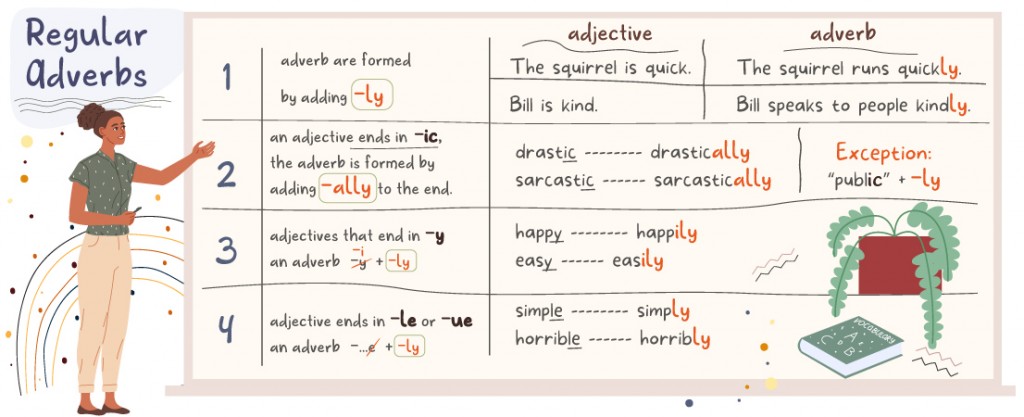 Regular
Adverbs
adjective
adverb
1
adverb are formed
by adding -ly
The squirrel is quick.
The squirrel runs quickly.
Bill is kind.
Bill speaks to people kindly.
2
an adjective ends in -ic,
the adverb is formed by
adding -ally to the end.
drastic -------- drastically
sarcastic ------ sarcastically
Exception:
"public" + -ly
3
adjectives that end in -y
-i
an adverb -y + -ly
happy -------- happily
easy ------ easily
4
adjective ends in -le or -ue
an adverb -...e + -ly
simple ------ simply
horrible ------ horribly
VOCABULARY
A
C
B